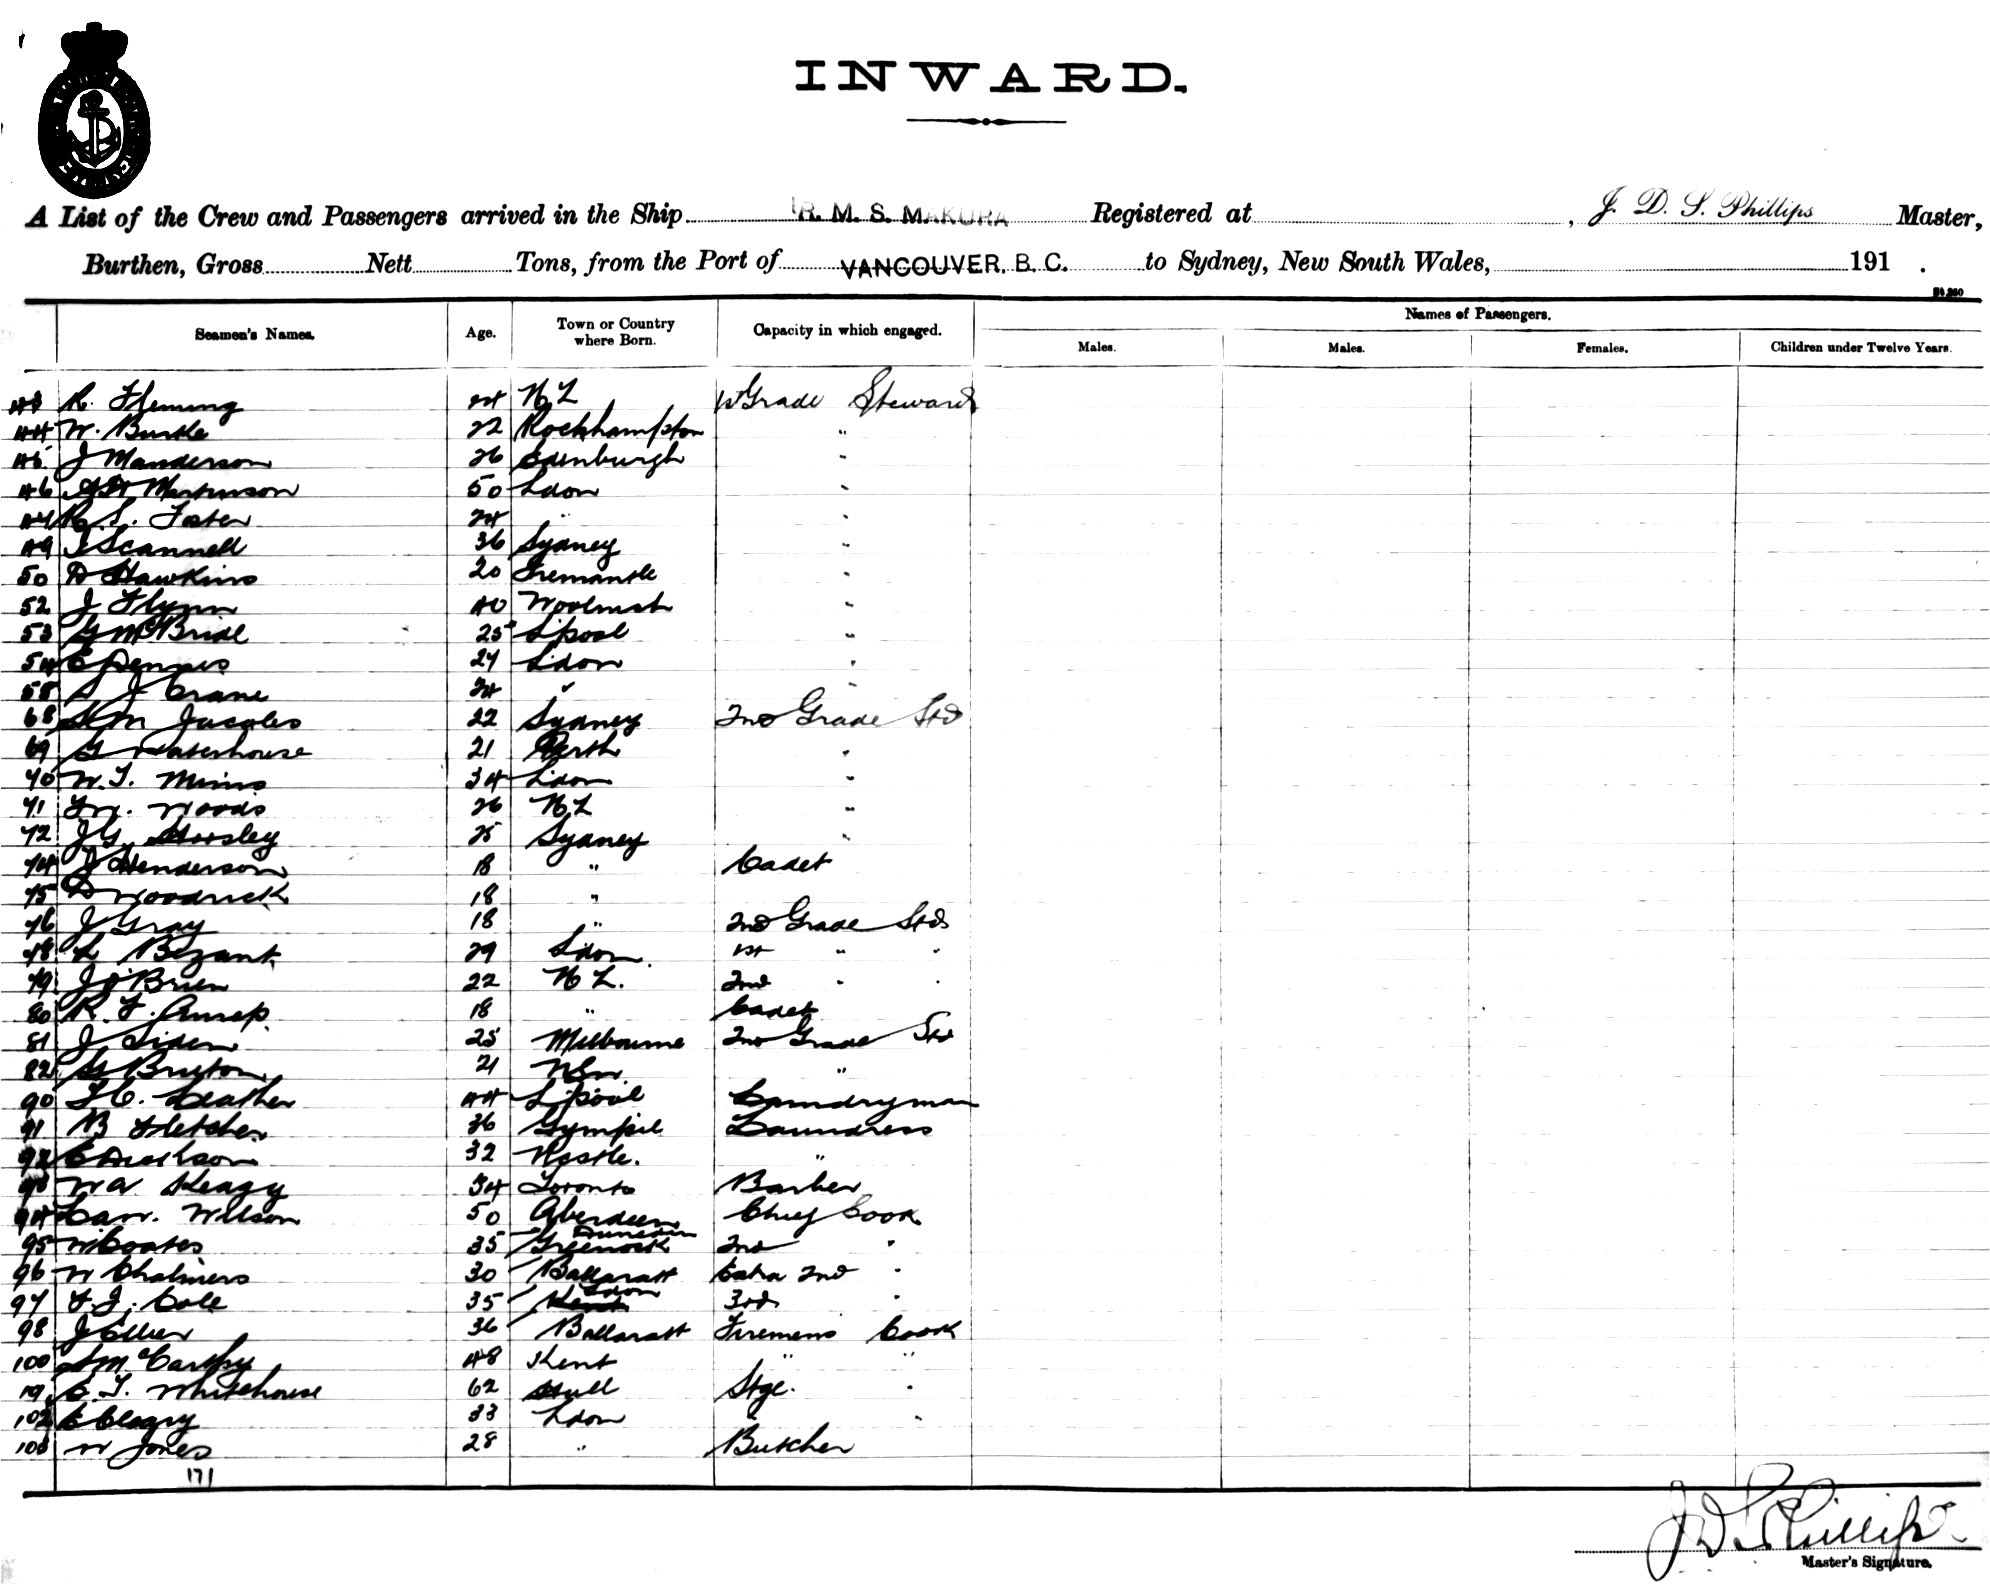 INWARD.
A List of the Crew and Passengers arrived in the Ship R. M. S. MAKURA Registered at , J. D. S. Phillips Master,
Burthen, Gross Nett Tons, from the Port of VANCOUVER, B. C. to Sydney, New South Wales, 191 .
Seamen's Names. Age. Town or Country where Born. Capacity in which engaged. Names of Passengers.
Males. Males. Females. Children under Twelve Years.
43 R. Fleming 24 NZ 1st Grade Steward
44 W. Burke 22 Rockhampton "
45 J Manderson 26 Edinburgh "
46 Martinson 50 Ldon "
47 R. S. Foster 24 " "
49 J Scannell 36 Sydney "
50 D Hawkins 20 Fremantle "
52 J Flynn 40 "
53 G McBride 25 L'pool "
54 E Dennis 27 L'don "
55 S J Crane 24 " "
68 S M Jacobs 22 Sydney 2nd Grade Std
69 G Waterhouse 21 Perth "
70 W. T. Mims 34 L'don "
71 Woods 26 NZ "
72 J G Horsley 25 Sydney "
74 J Henderson 18 " Cadet
75 D Woodrick 18 "
76 J Gray 18 " 2nd Grade Stds
78 L Bezant 29 L'don 1st " "
79 J O'Brien 22 NZ. 2nd " "
80 R. F. 18 " Cadet
81 J 25 Melbourne 2nd Grade Std
82 G Bruton 21 "
90 F C. Leather 44 L'pool Laundryman
91 B Fletcher 36 Gympie Laundress
92 E Dickson 32 N'castle. "
93 W A Keagy 34 Toronto Barber
94 Wilson 50 Aberdeen Chief Cook
95 W Coates 35 Greenock Dunedin 2nd "
96 W Chalmers 30 Ballaratt Extra 2nd "
97 F. J. Cole 35 Kent Ldon 3rd "
98 J Ellier 36 Ballaratt Firemens Cook
100 S McCarthy 48 Kent " "
101 E. T. Whitehouse 62 Hull Stge. "
102 E Clegry 33 Ldon " "
103 W Jones 28 " Butcher
171
J D S Phillips
Master's Signature.